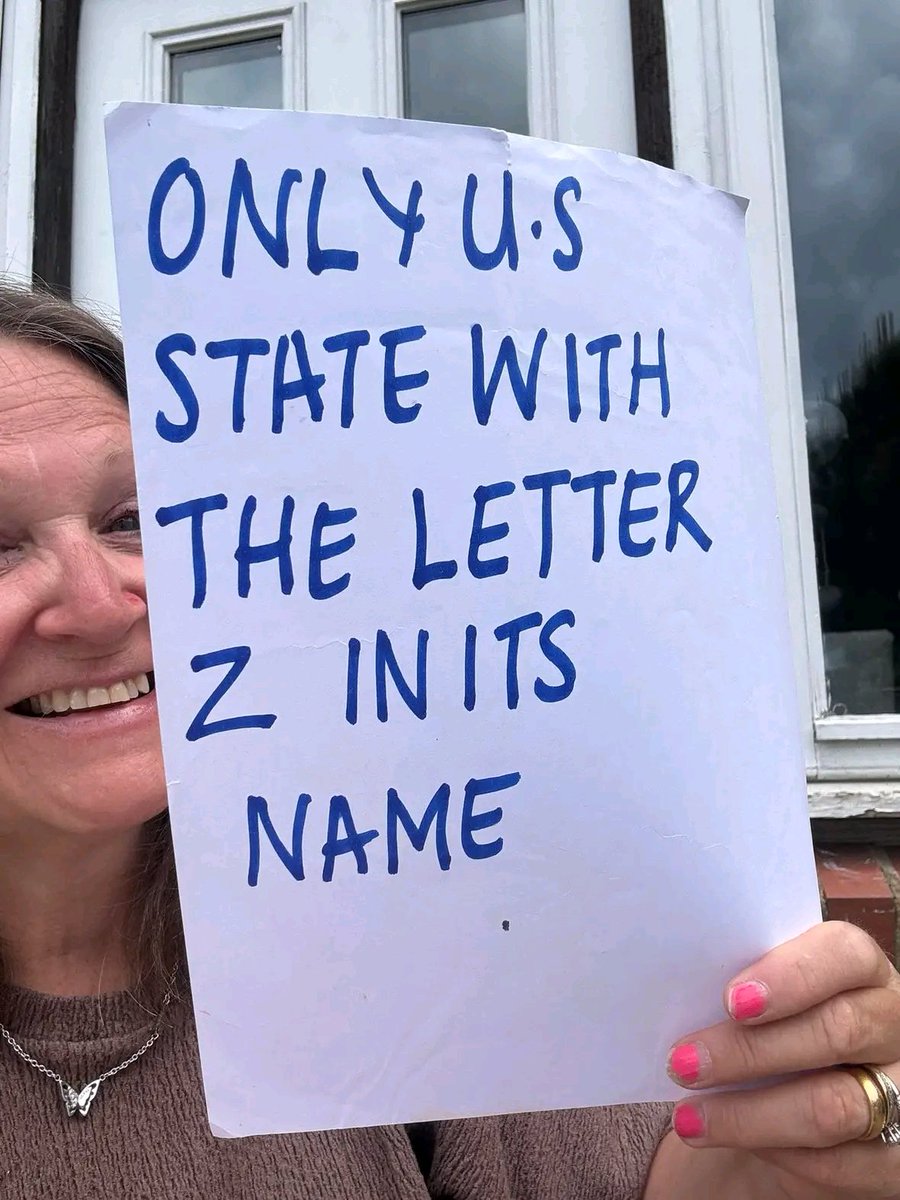 ONLY U.S
STATE WITH
THE LETTER
Z IN ITS
NAME